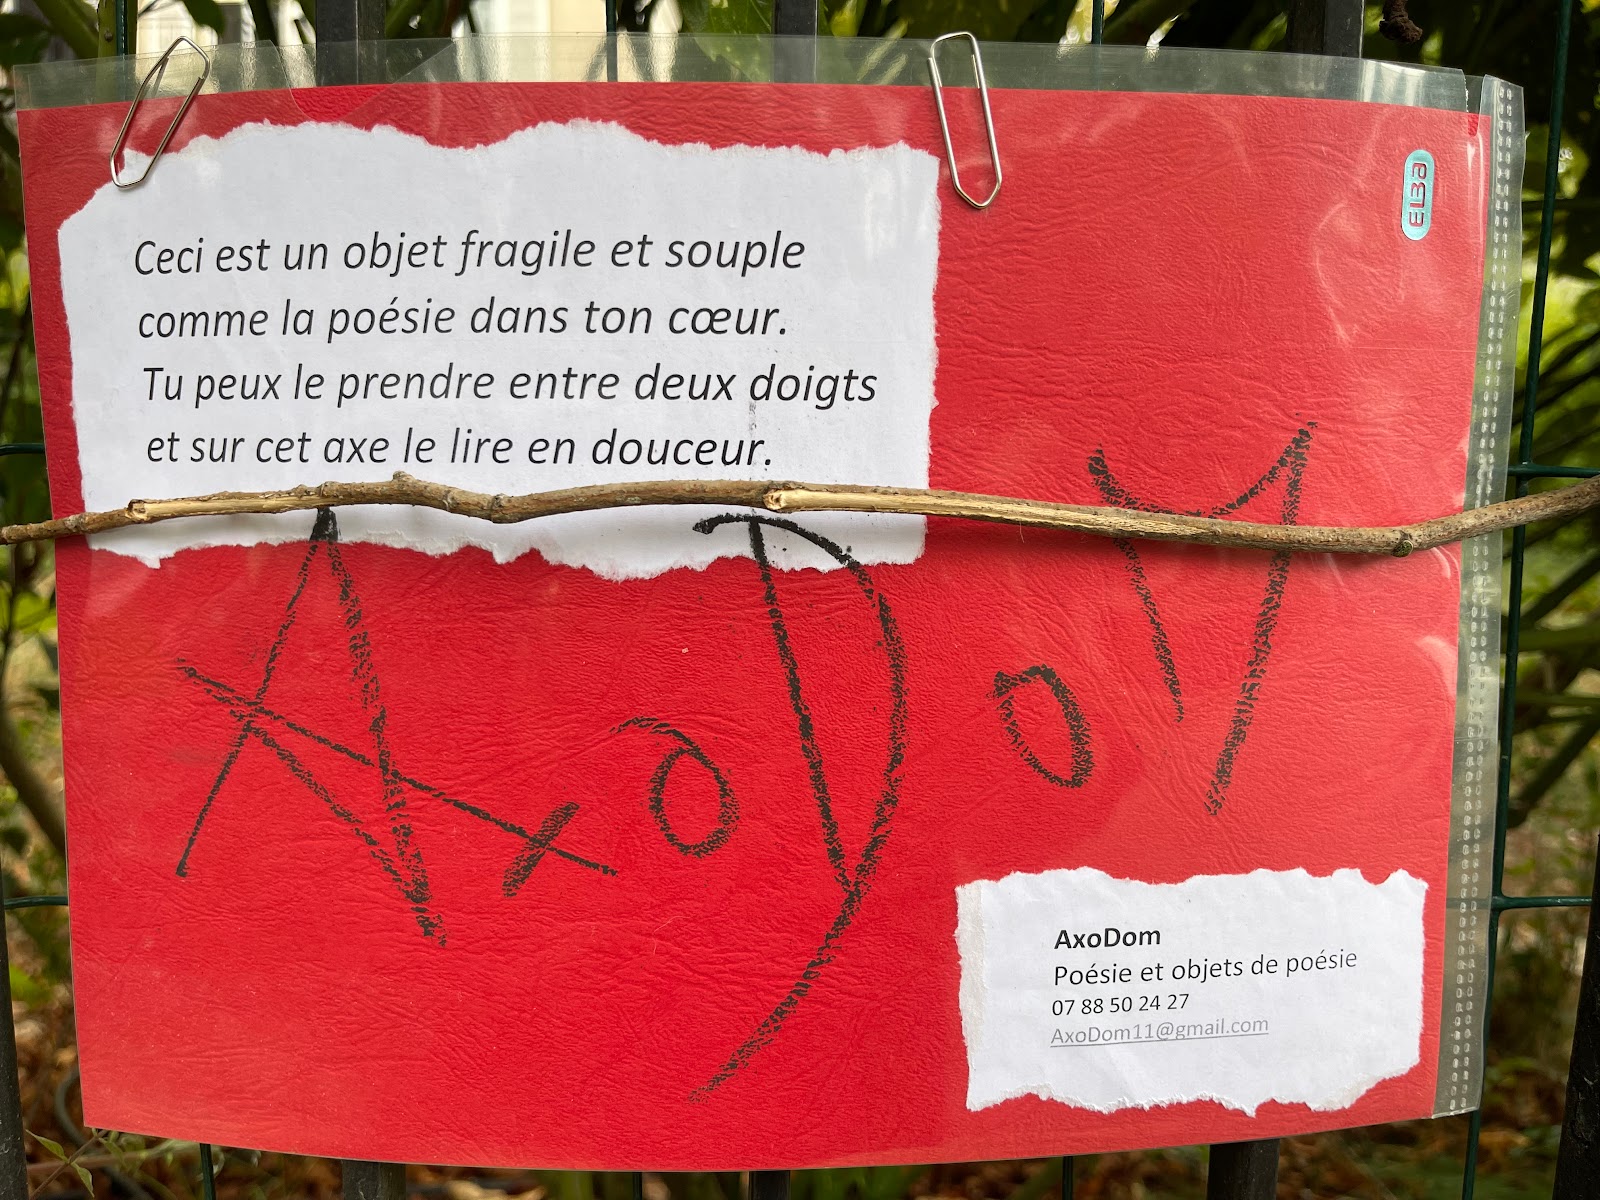 ELBA
Ceci est un objet fragile et souple
comme la poésie dans ton cœur.
Tu peux le prendre entre deux doigts
et sur cet axe le lire en douceur.
AxoDoM
AxoDom
Poésie et objets de poésie
07 88 50 24 27
AxoDom11@gmail.com